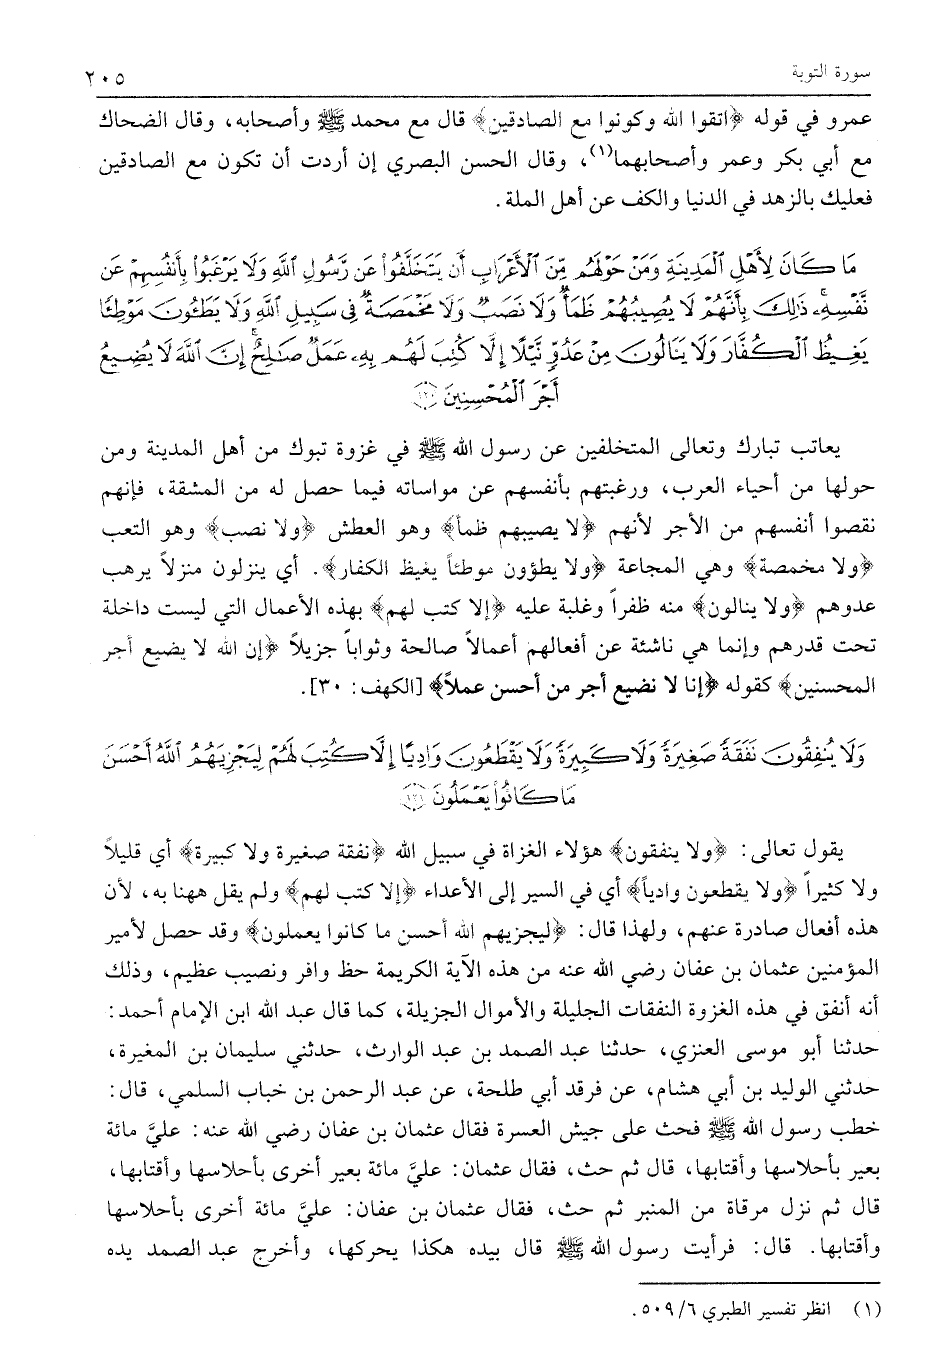 سورة التوبة
٢٠٥
عمرو في قوله ﴿اتقوا الله وكونوا مع الصادقين﴾ قال مع محمد ﷺ وأصحابه، وقال الضحاك
مع أبي بكر وعمر وأصحابهما(١)، وقال الحسن البصري إن أردت أن تكون مع الصادقين
فعليك بالزهد في الدنيا والكف عن أهل الملة.
مَا كَانَ لِأَهْلِ ٱلْمَدِينَةِ وَمَنْ حَوْلَهُم مِّنَ ٱلْأَعْرَابِ أَن يَتَخَلَّفُوا۟ عَن رَّسُولِ ٱللَّهِ وَلَا يَرْغَبُوا۟ بِأَنفُسِهِمْ عَن
نَّفْسِهِۦ ۚ ذَٰلِكَ بِأَنَّهُمْ لَا يُصِيبُهُمْ ظَمَأٌ وَلَا نَصَبٌ وَلَا مَخْمَصَةٌ فِى سَبِيلِ ٱللَّهِ وَلَا يَطَـُٔونَ مَوْطِئًا
يَغِيظُ ٱلْكُفَّارَ وَلَا يَنَالُونَ مِنْ عَدُوٍّ نَّيْلًا إِلَّا كُتِبَ لَهُم بِهِۦ عَمَلٌ صَـٰلِحٌ ۚ إِنَّ ٱللَّهَ لَا يُضِيعُ
أَجْرَ ٱلْمُحْسِنِينَ ﴿١٢٠﴾
يعاتب تبارك وتعالى المتخلفين عن رسول الله ﷺ في غزوة تبوك من أهل المدينة ومن
حولها من أحياء العرب، ورغبتهم بأنفسهم عن مواساته فيما حصل له من المشقة، فإنهم
نقصوا أنفسهم من الأجر لأنهم ﴿لا يصيبهم ظمأ﴾ وهو العطش ﴿ولا نصب﴾ وهو التعب
﴿ولا مخمصة﴾ وهي المجاعة ﴿ولا يطؤون موطئاً يغيظ الكفار﴾. أي ينزلون منزلاً يرهب
عدوهم ﴿ولا ينالون﴾ منه ظفراً وغلبة عليه ﴿إلا كتب لهم﴾ بهذه الأعمال التي ليست داخلة
تحت قدرهم وإنما هي ناشئة عن أفعالهم أعمالاً صالحة وثواباً جزيلاً ﴿إن الله لا يضيع أجر
المحسنين﴾ كقوله ﴿إنا لا نضيع أجر من أحسن عملاً﴾ [الكهف: ٣٠].
وَلَا يُنفِقُونَ نَفَقَةً صَغِيرَةً وَلَا كَبِيرَةً وَلَا يَقْطَعُونَ وَادِيًا إِلَّا كُتِبَ لَهُمْ لِيَجْزِيَهُمُ ٱللَّهُ أَحْسَنَ
مَا كَانُوا۟ يَعْمَلُونَ ﴿١٢١﴾
يقول تعالى: ﴿ولا ينفقون﴾ هؤلاء الغزاة في سبيل الله ﴿نفقة صغيرة ولا كبيرة﴾ أي قليلاً
ولا كثيراً ﴿ولا يقطعون وادياً﴾ أي في السير إلى الأعداء ﴿إلا كتب لهم﴾ ولم يقل ههنا به، لأن
هذه أفعال صادرة عنهم، ولهذا قال: ﴿ليجزيهم الله أحسن ما كانوا يعملون﴾ وقد حصل لأمير
المؤمنين عثمان بن عفان رضي الله عنه من هذه الآية الكريمة حظ وافر ونصيب عظيم، وذلك
أنه أنفق في هذه الغزوة النفقات الجليلة والأموال الجزيلة، كما قال عبد الله ابن الإمام أحمد:
حدثنا أبو موسى العنزي، حدثنا عبد الصمد بن عبد الوارث، حدثني سليمان بن المغيرة،
حدثني الوليد بن أبي هشام، عن فرقد أبي طلحة، عن عبد الرحمن بن خباب السلمي، قال:
خطب رسول الله ﷺ فحث على جيش العسرة فقال عثمان بن عفان رضي الله عنه: عليَّ مائة
بعير بأحلاسها وأقتابها، قال ثم حث، فقال عثمان: عليَّ مائة بعير أخرى بأحلاسها وأقتابها،
قال ثم نزل مرقاة من المنبر ثم حث، فقال عثمان بن عفان: عليَّ مائة أخرى بأحلاسها
وأقتابها. قال: فرأيت رسول الله ﷺ قال بيده هكذا يحركها، وأخرج عبد الصمد يده
(١) انظر تفسير الطبري ٥٠٩/٦.